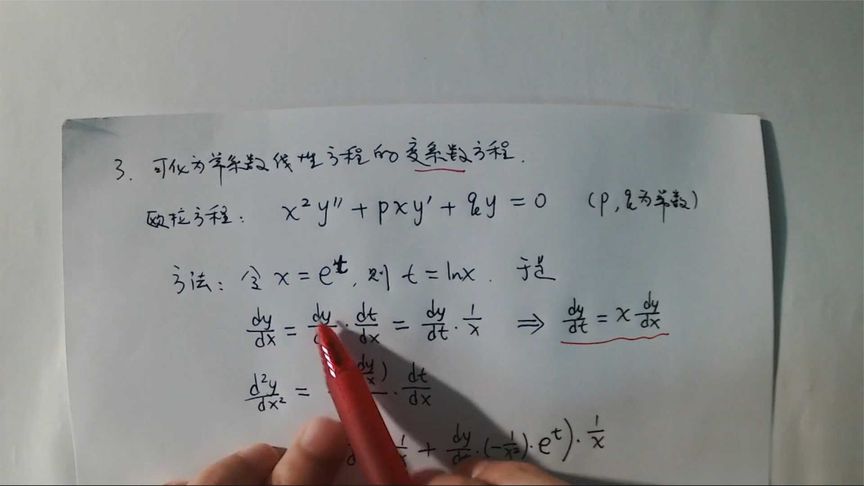 3. 可化为常系数线性方程的变系数方程.
欧拉方程: x²y″ + pxy′ + qy = 0 (p,q为常数)
方法: 令 x = eᵗ, 则 t = lnx. 于是
dy/dx = dy/ · dt/dx = dy/dt · 1/x ⇒ dy/dt = x dy/dx
d²y/dx² = · dt/dx
+ dy/ · (-1/x²) · eᵗ) · 1/x